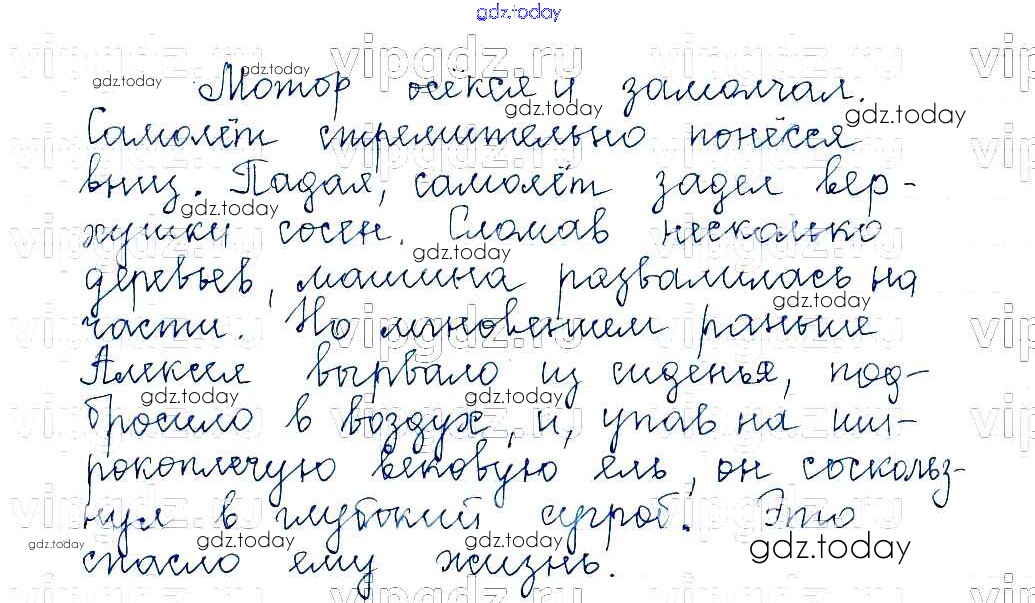 gdz.today
Мотор осёкся и замолчал.
Самолёт стремительно понёсся
вниз. Падая, самолёт задел вер-
хушки сосен. Сломав несколько
деревьев, машина развалилась на
части. Но мгновением раньше
Алексея вырвало из сиденья, под-
бросило в воздух, и, упав на ши-
рокоплечую вековую ель, он соскольз-
нул в глубокий сугроб. Это
спасло ему жизнь.